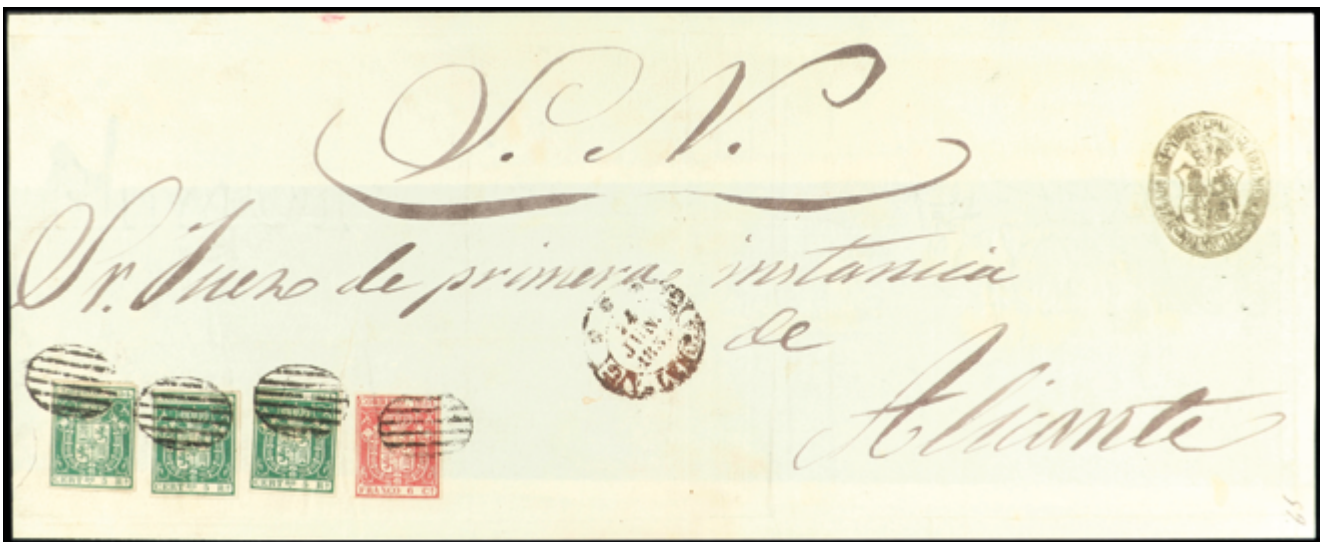 S. N.
Sr. Juez de primera instancia
de
Alicante
4
JUN.
CERT.DO 5 Rs
CERT.DO 5 Rs
CERT.DO 5 Rs
FRANCO 6 Cs